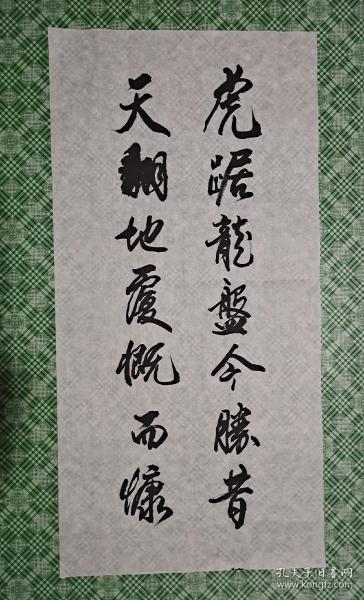 虎踞龍盤今勝昔
天翻地覆慨而慷
孔夫子旧书网
www.kongfz.com